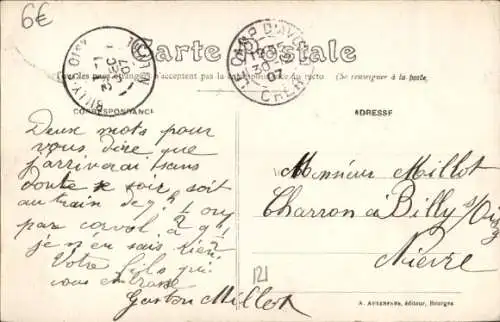 6€
Carte Postale
Tous les pays étrangers n'acceptent pas la correspondance au recto. (Se renseigner à la poste)
CORRESPONDANCE
ADRESSE
CAMP D'AVORD
CHER
BILLY
Deux mots pour
vous dire que
j'arriverai sans
doute ce soir soit
au train de 7h 1/2 ou
par corvol à 9h 1/2
je n'en sais rien
Votre fils qui
vous embrasse
Gaston Millot
Monsieur Millot
Charron à Billy s/Oisy
Nièvre
121
A. AUXENFANS, éditeur, Bourges